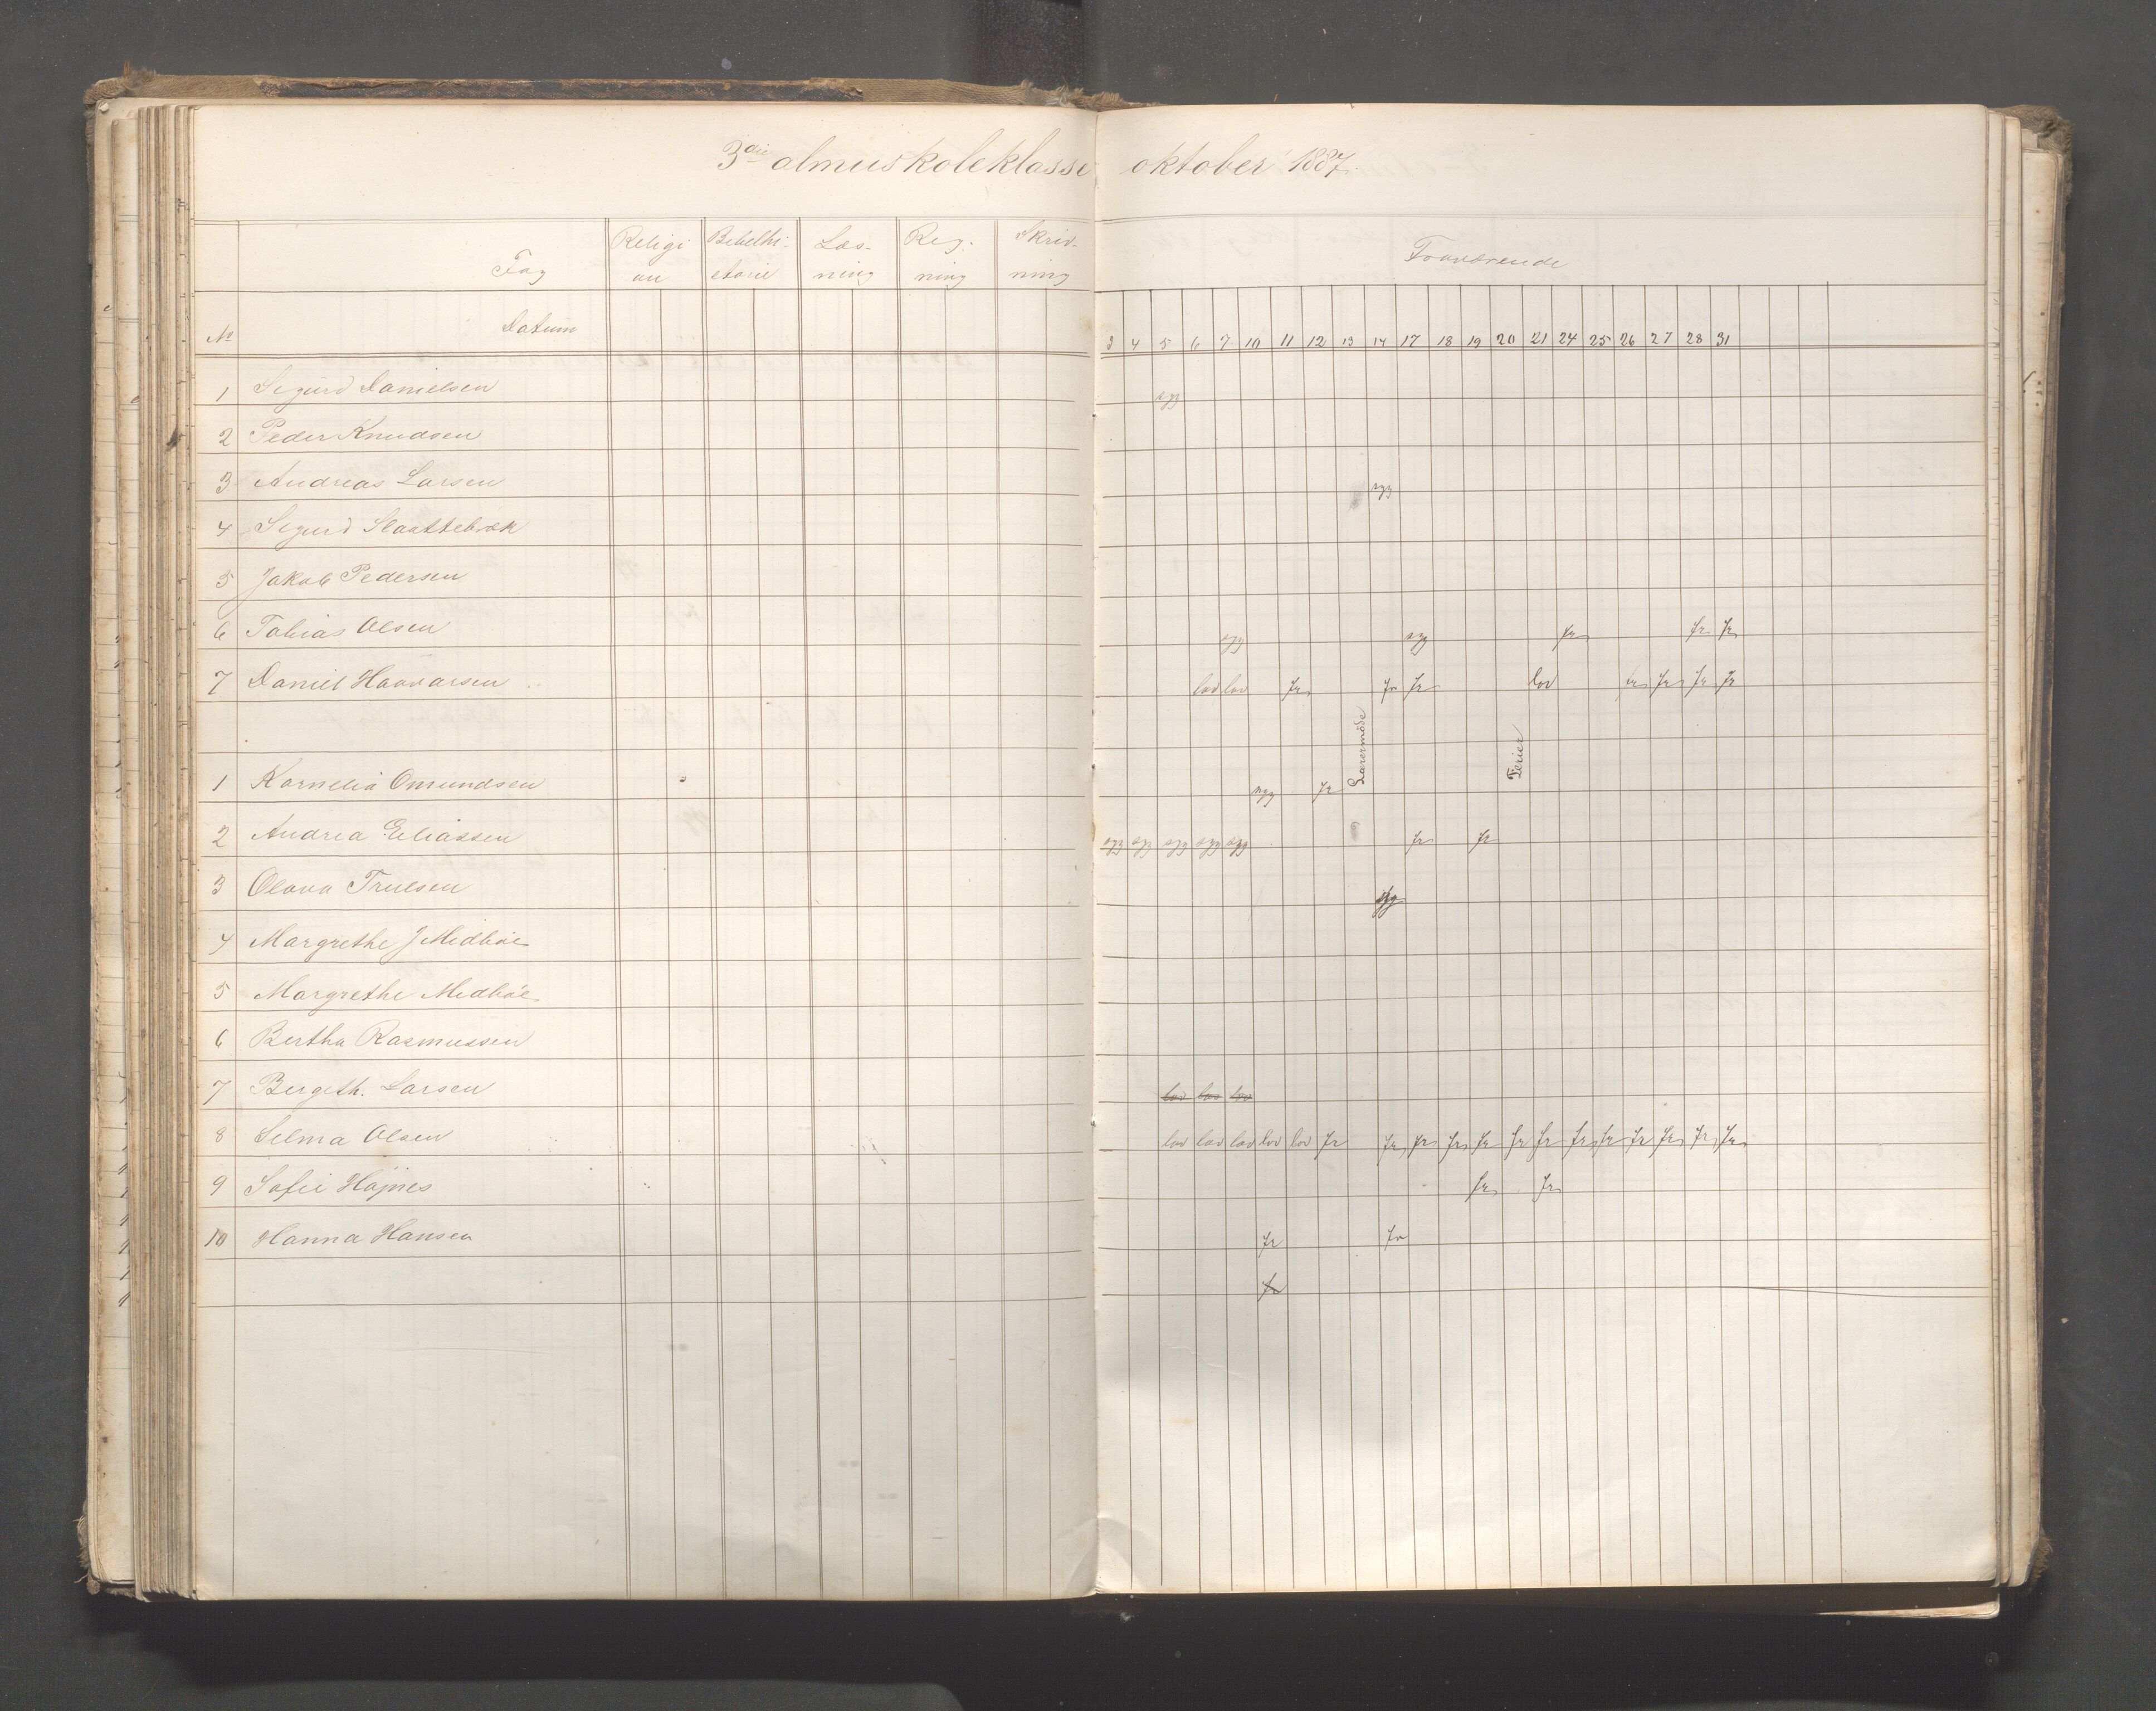 3die almueskoleklasse oktober 1887.
Fag Religion Bibelhistorie Læsning Regning Skrivning Fraværende
No Datum 3 4 5 6 7 10 11 12 13 14 17 18 19 20 21 24 25 26 27 28 31
1 Sigurd Danielsen syg
2 Peder Knudsen
3 Andreas Larsen syg
4 Sigurd Slaattebræk
5 Jakob Pedersen
6 Tobias Olsen syg syg fr fr fr
7 Daniel Haavarsen lov lov fr fr fr lov fr fr fr fr
Lærermöde Ferier
1 Kornelia Omundsen syg fr
2 Andrea Eliassen syg syg syg syg syg fr fr
3 Olava Trulsen syg
4 Margrethe J Midböe
5 Margrethe Midböe
6 Bertha Rasmussen
7 Bergith. Larsen lov lov lov
8 Selma Olsen lov lov lov lov lov fr fr fr fr fr fr fr fr fr fr fr fr fr
9 Sofie Höjnes fr fr
10 Hanna Hansen fr fr
fr